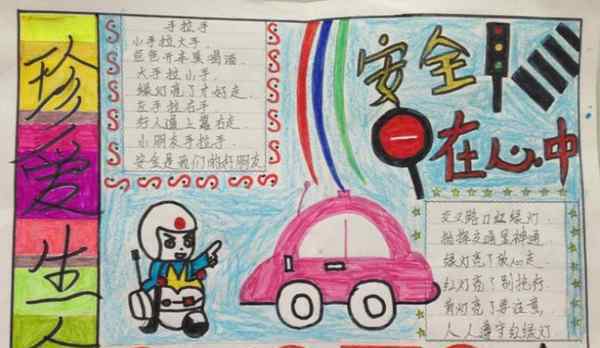 珍爱生
手拉手
小手拉大手
大手拉小手
绿灯亮了才好走
左手拉右手
行人道上靠右走
小朋友手拉手
安全是我们的好朋友
安全
在心中
交叉路口红绿灯
指挥交通显神通
绿灯亮了放心走
红灯亮了别抢行
黄灯亮了要注意
人人遵守红绿灯